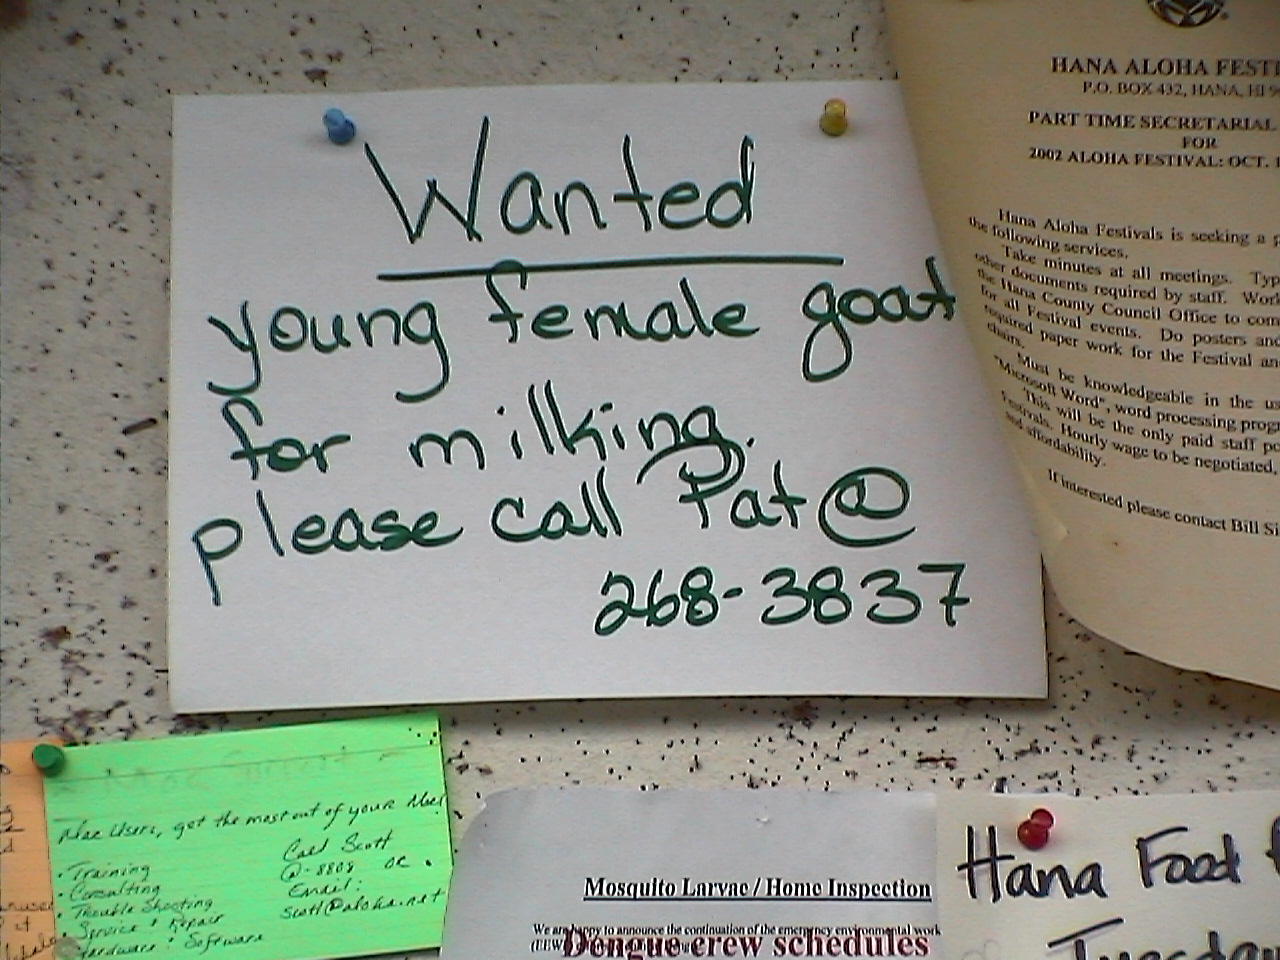 Wanted
young female goat
for milking.
please call Pat @
268-3837
HANA ALOHA FESTI
P.O. BOX 432, HANA, HI 9
PART TIME SECRETARIAL
FOR
2002 ALOHA FESTIVAL: OCT. 1
Hana Aloha Festivals is seeking a p
the following services.
Take minutes at all meetings. Typ
other documents required by staff. Work
the Hana County Council Office to com
for all Festival events. Do posters and
required paper work for the Festival an
chairs.
Must be knowledgeable in the us
"Microsoft Word", word processing prog
This will be the only paid staff po
Festivals. Hourly wage to be negotiated,
and affordability.
If interested please contact Bill Si
Mac Users, get the most out of your Mac!
• Training
• Consulting
• Trouble Shooting
• Service & Repair
Hardware & Software
Call Scott
@ - 8808 or
Email:
scott@aloha.net
Mosquito Larvae / Home Inspection
We are happy to announce the continuation of the emergency environmental work
(EEW)
Dengue crew schedules
Hana Food
Tuesda